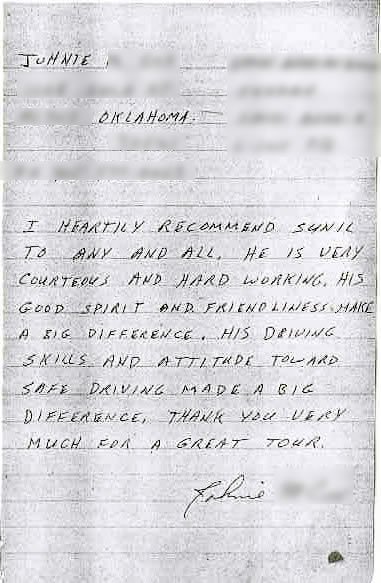 JOHNIE
OKLAHOMA.
I HEARTILY RECOMMEND SUNIL
TO ANY AND ALL. HE IS VERY
COURTEOUS AND HARD WORKING. HIS
GOOD SPIRIT AND FRIENDLINESS MAKE
A BIG DIFFERENCE. HIS DRIVING
SKILLS AND ATTITUDE TOWARD
SAFE DRIVING MADE A BIG
DIFFERENCE. THANK YOU VERY
MUCH FOR A GREAT TOUR.
Johnie